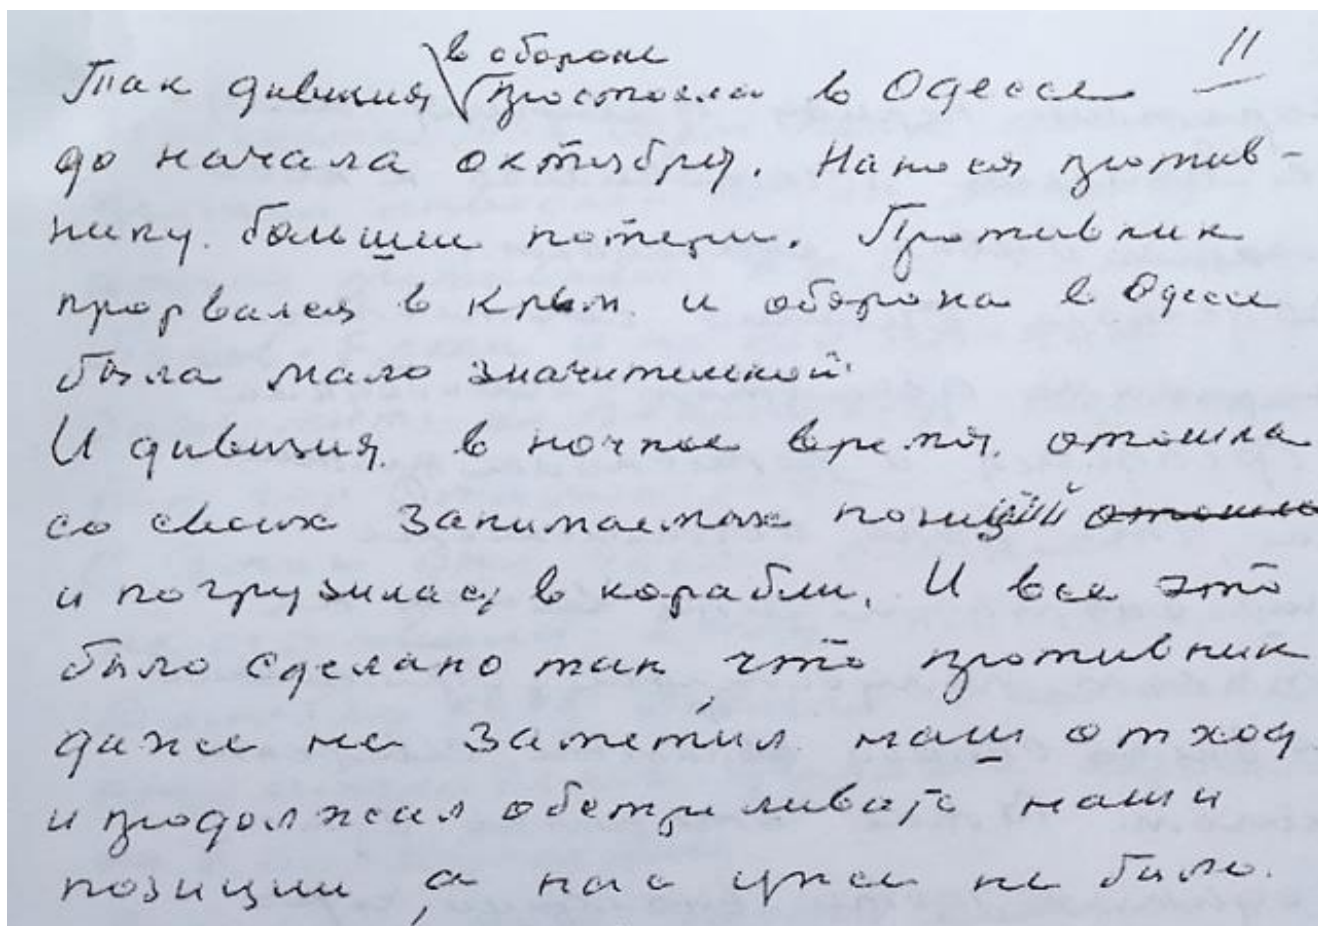 11
в обороне
Так дивизия простояла в Одессе
до начала октября. Нанося против-
нику большие потери. Противник
прорвался в Крым и оборона в Одессе
была мало значительной.
И дивизия в ночное время отошла
со своих занимаемых позиций отошла
и погрузилась в корабли. И все это
было сделано так, что противник
даже не заметил наш отход
и продолжал обстреливать наши
позиции, а нас уже не было.